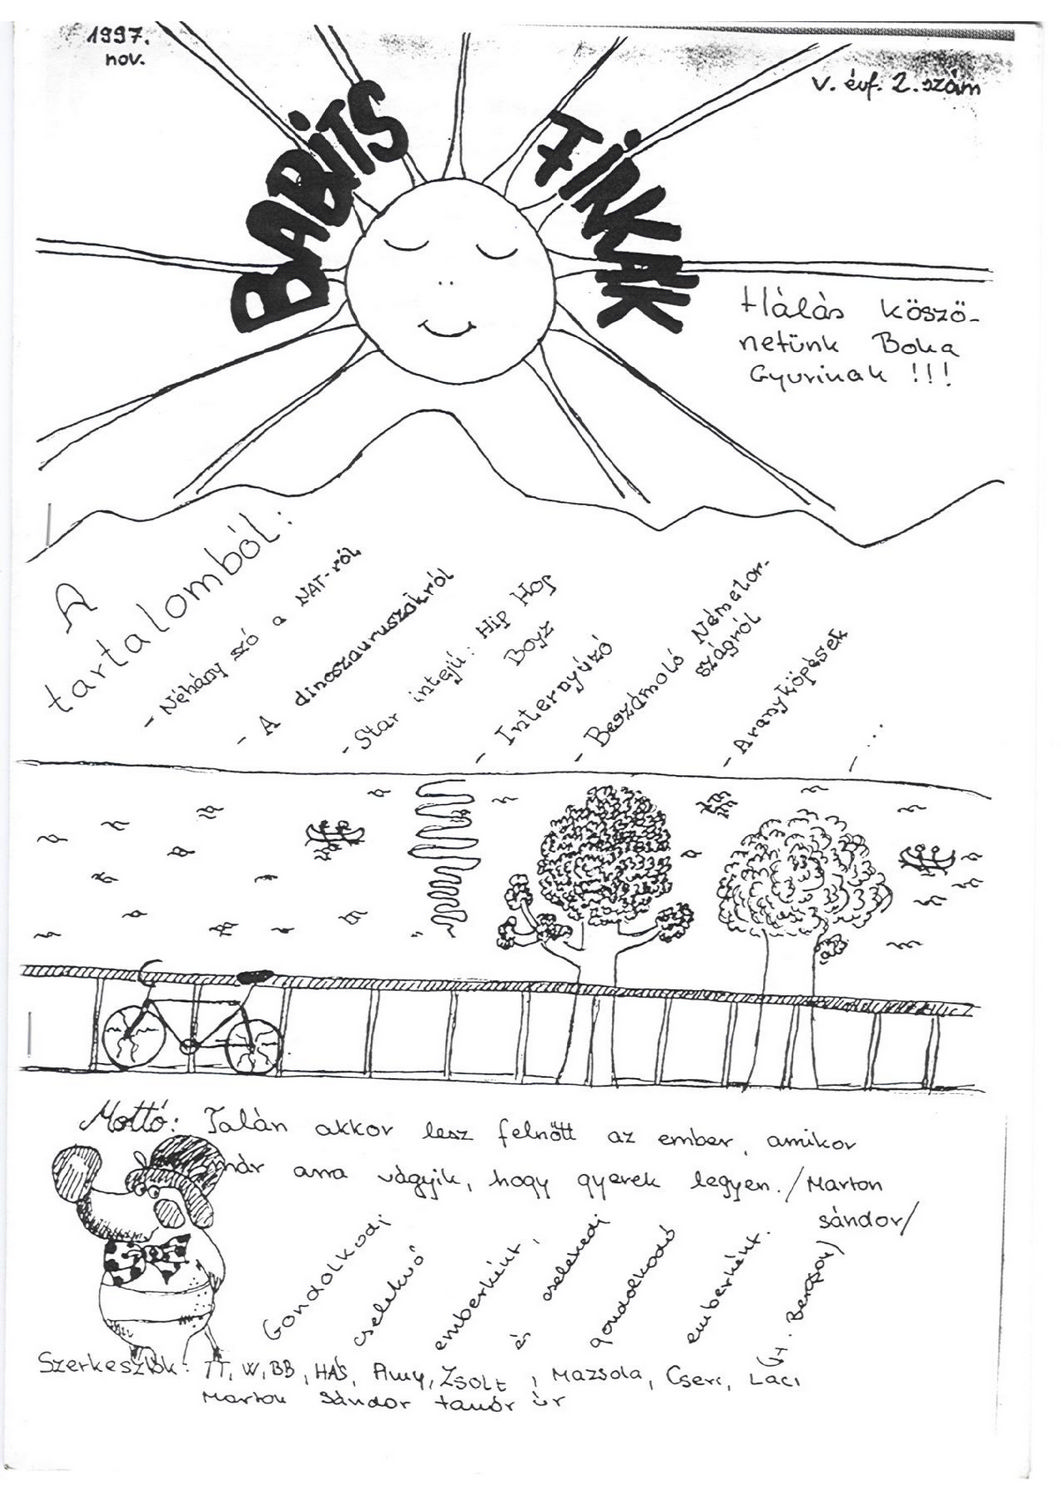 1997.
nov.
V. évf. 2. szám
BABITS
FIRKÁK
Hálás köszö-
netünk Boka
Gyurinak !!!
A
tartalomból:
- Néhány szó a NAT-ról
- A dinoszauruszokról
- Star intejú: Hip Hop
Boyz
- Internyúzó
- Beszámoló Németor-
szágról
- Aranyköpések
- ...
Mottó: Talán akkor lesz felnőtt az ember, amikor
már arra vágyik, hogy gyerek legyen. /Marton
Sándor/
Gondolkodj
cselekvő
emberként,
és
cselekedj
gondolkodó
emberként.
Bergson/
Szerkesztők: TT, W, BB, HAS, Amy, Zsolt, Mazsola, Cseri, Laci
Marton Sándor tanár úr